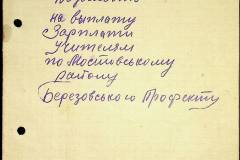 на выплату
Зарплати
учителям
по Мостовському
району
Березовського Профекту